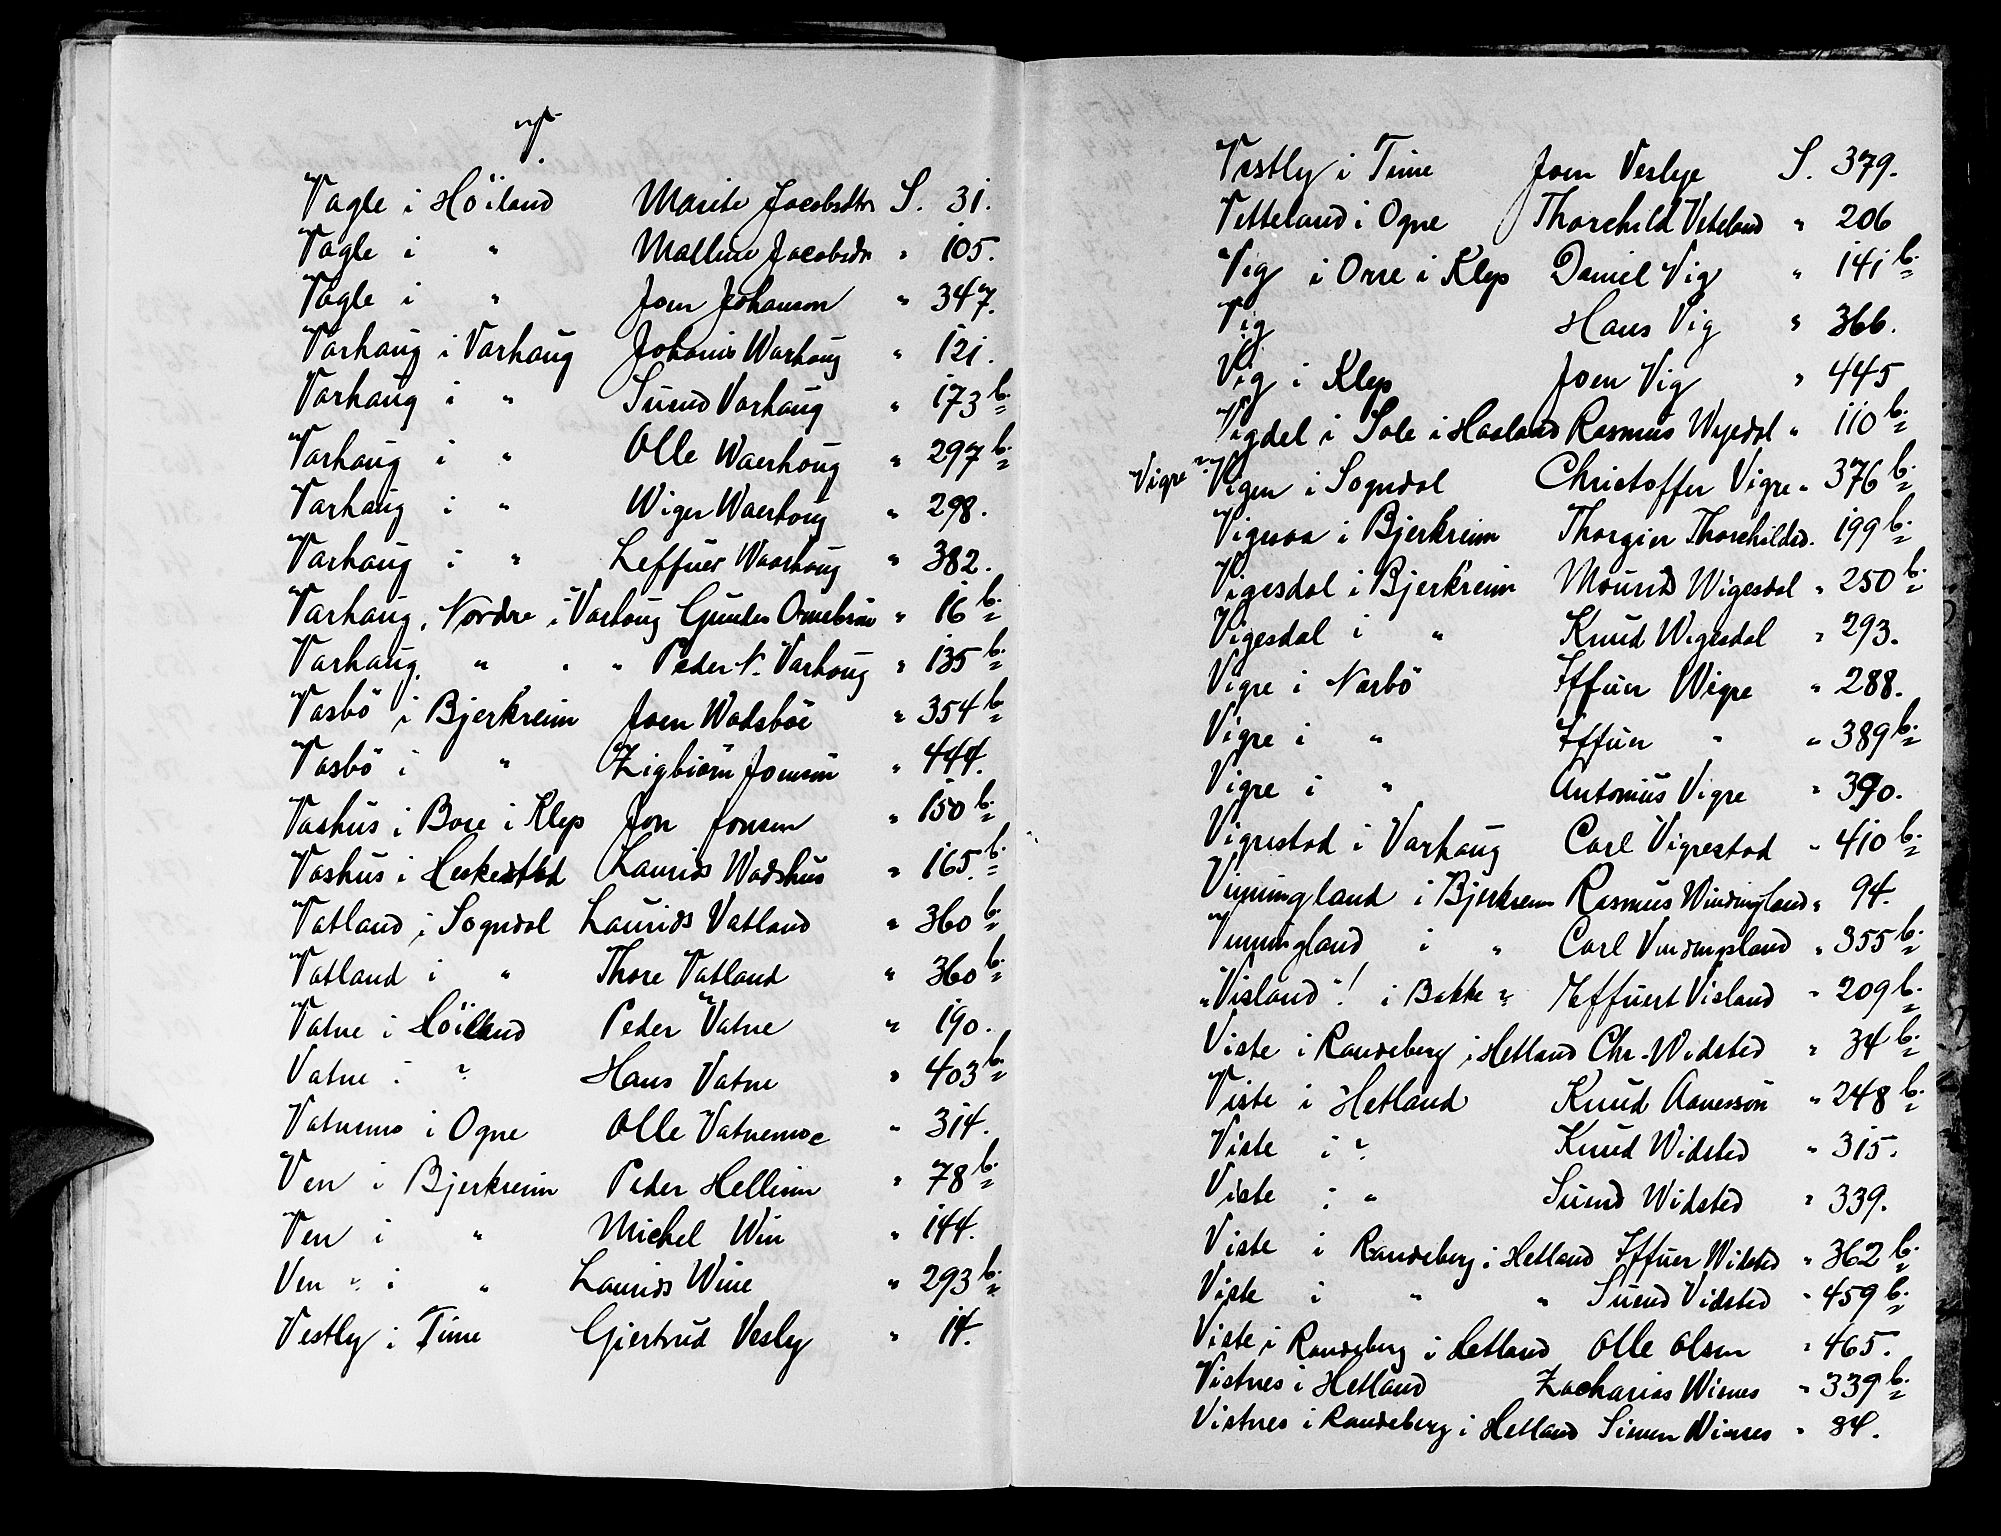 V.
Vagle i Höiland Marite Jacobsdtr S. 31.
Vagle i " Malline Jacobsdr " 105.
Vagle i " Joen Johanson " 347.
Varhaug i Varhaug Johanis Warhoug " 121.
Varhaug i " Suend Varhaug " 173 b.
Varhaug i " Olle Waerhoug " 297 b.
Varhaug i " Wiger Waerhoug " 298.
Varhaug i " Leffuer Waarhoug " 382.
Varhaug, Nordre i Varhaug Gunder " 16 b.
Varhaug, " . " Peder N. Varhoug " 135 b.
Vasbö i Bjerkreim Joen Wadsböe " 354 b.
Vasbö i " Zigbiörn Joensen " 444.
Vashus i Bore i Klep Jon Jonsen " 150 b.
Vashus i Heskestad Laurids Wadshus " 165. b.
Vatland i Sogndal Laurids Vatland " 360 b.
Vatland i " Thore Vatland " 360 b.
Vatne i Höiland Peder Vatne " 190.
Vatne i " Hans Vatne " 403 b.
Vatnemo i Ogne Olle Vatnemoe " 314.
Ven i Bjerkreim Peder Hellisen " 78 b.
Ven i " Michel Win " 144.
Ven " i " Laurids Wine " 293 b.
Vestly i Time Giertrud Vesly " 14.
Vestly i Time Joen Veslye S. 379.
Vetteland i Ogne Thorchild Veteland " 206
Vig i Orre i Klep Daniel Vig " 141 b.
Vig Hans Vig " 366.
Vig i Klep Joen Vig " 445
Vigdel i Sole i Haaland Rasmus Wigdal " 110 b.
Vigre? Vigen i Sogndal Christoffer Vigre " 376 b.
Vigesaa i Bjerkreim Thorgier Thorchildsd. 199 b.
Vigesdal i Bjerkreim Mourids Wigesdal " 250 b.
Vigesdal i " Knud Wigesdal " 293.
Vigre i Narbö Iffuer Wigre " 288.
Vigre i " Iffuer " " 389 b.
Vigre i " Antonius Vigre " 390.
Vigrestad i Varhaug Carl Vigrestad " 410 b.
Vinningland i Bjerkreim Rasmus Windingland " 94.
Vinningland i " Carl Vindingsland " 355 b.
"Visland"! i Bakke " Iffuert Visland " 209 b.
Viste i Randeberg i Hetland Chr. Widsted " 34 b.
Viste i Hetland Knud Aanesson " 248 b.
Viste i " Knud Widsted " 315.
Viste i " Suend Widsted " 339.
Viste i Randeberg i Hetland Iffuer Widsted " 362 b.
Viste i " " Suend Vidsted " 459 b.
Viste i Randeberg i Hetland Olle Olsen " 465.
Vistnes i Hetland Zacharias Wisnes " 339 b.
Vistnes i Randeberg i Hetland Simen Wisnes " 84.